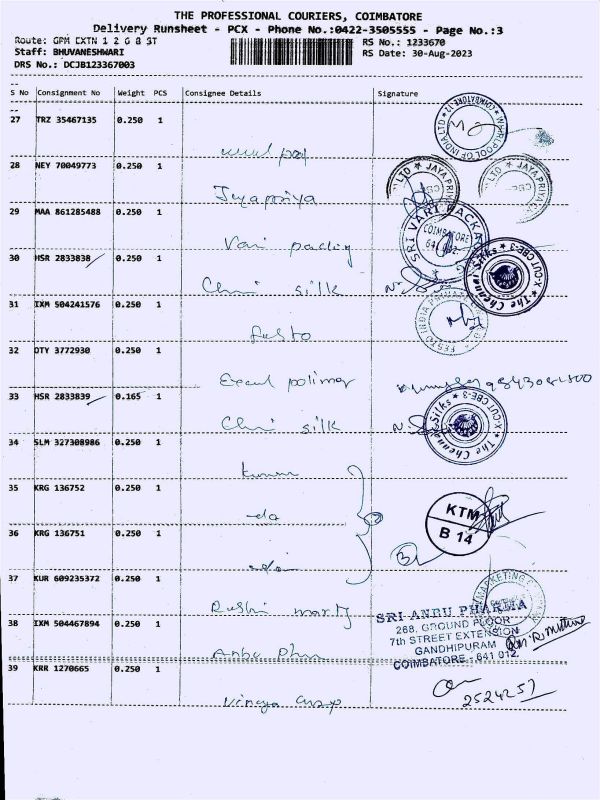 THE PROFESSIONAL COURIERS, COIMBATORE
Delivery Runsheet - PCX - Phone No.:0422-3505555 - Page No.:3
Route: GPM EXTN 1 2 G 8 ST
RS No.: 1233670
Staff: BHUVANESHWARI
RS Date: 30-Aug-2023
DRS No.: DCJB123367003
S No Consignment No Weight PCS Consignee Details Signature
27 TRZ 35467135 0.250 1
WHIRLPOOL OF INDIA LTD
28 NEY 70049773 0.250 1 Jayapriya
29 MAA 861285488 0.250 1 Vari packag
SRI VARI PACKA
COIMBATORE
641 012.
30 HSR 2833838 0.250 1 Chni silk
The Chennai Silks ★ X-CUT CBE-3 ★
31 IXM 504241576 0.250 1 festo
FESTO INDIA PRIVATE
32 DTY 3772930 0.250 1 Excel polimar
33 HSR 2833839 0.165 1 Chni silk
The Chennai Silks ★ X-CUT CBE-3 ★
34 SLM 327308986 0.250 1 kumar
35 KRG 136752 0.250 1 do
KTM
B 14
36 KRG 136751 0.250 1 do
37 KUR 609235372 0.250 1
MARKETING
38 IXM 504467894 0.250 1
SRI ANBU PHARMA
268, GROUND FLOOR
7th STREET EXTENSION
GANDHIPURAM
COIMBATORE - 641 012.
39 KRR 1270665 0.250 1
2524257